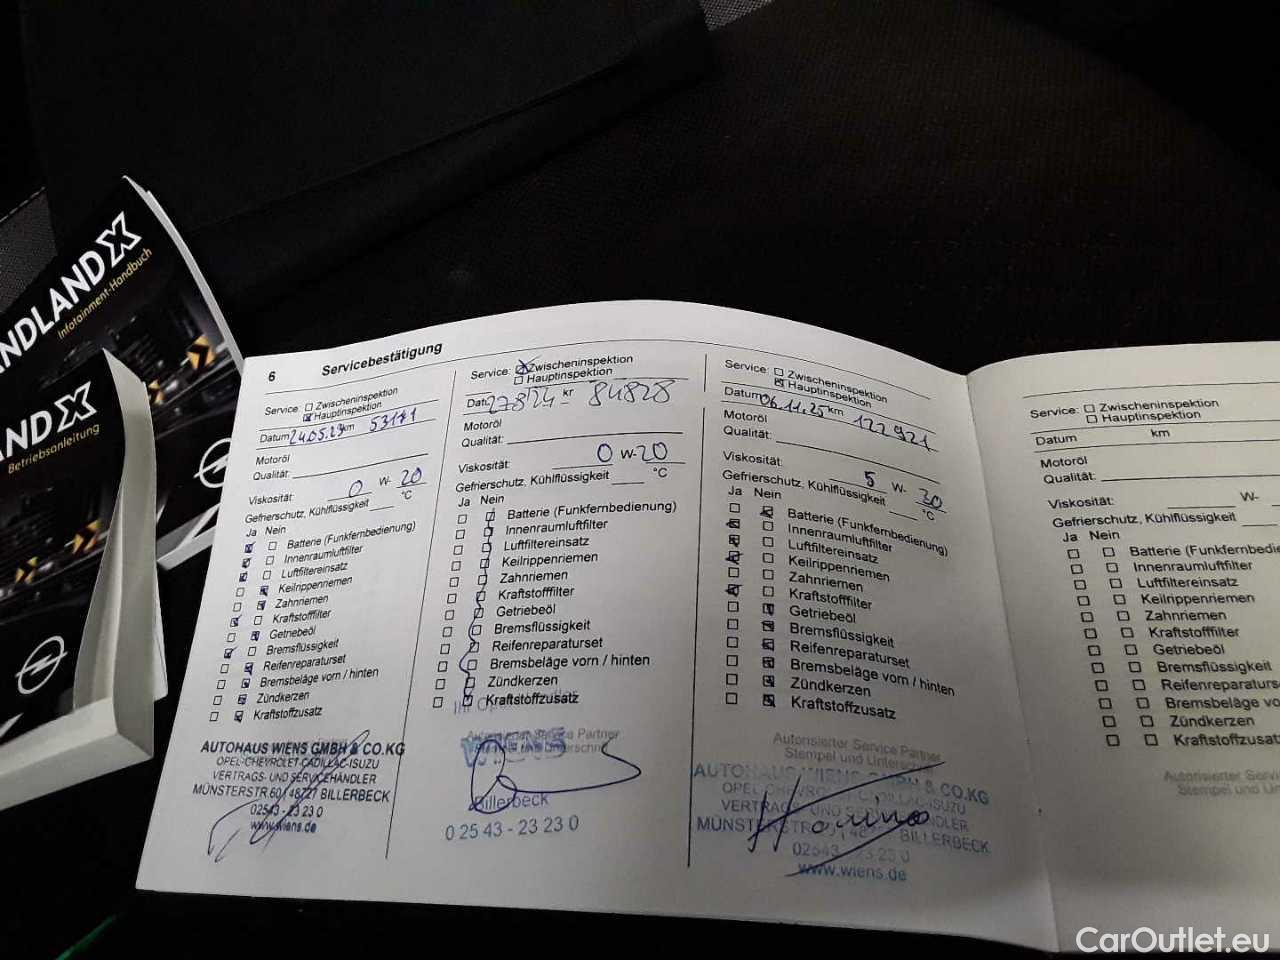 ANDLAND X
Infotainment-Handbuch
AND X
Betriebsanleitung
6 Servicebestätigung
Service: Zwischeninspektion
Hauptinspektion
Datum 24.05.23 km 53171
Motoröl
Qualität:
Viskosität: 0 W- 20
Gefrierschutz, Kühlflüssigkeit °C
Ja Nein
Batterie (Funkfernbedienung)
Innenraumluftfilter
Luftfiltereinsatz
Keilrippenriemen
Zahnriemen
Kraftstofffilter
Getriebeöl
Bremsflüssigkeit
Reifenreparaturset
Bremsbeläge vorn / hinten
Zündkerzen
Kraftstoffzusatz
AUTOHAUS WIENS GMBH & CO.KG
OPEL-CHEVROLET-CADILLAC-ISUZU
VERTRAGS- UND SERVICEHÄNDLER
MÜNSTERSTR.60 / 48727 BILLERBECK
02543 - 23 23 0
www.wiens.de
Service: Zwischeninspektion
Hauptinspektion
Datum 27.8.24 km 84828
Motoröl
Qualität:
Viskosität: 0 W-20
Gefrierschutz, Kühlflüssigkeit °C
Ja Nein
Batterie (Funkfernbedienung)
Innenraumluftfilter
Luftfiltereinsatz
Keilrippenriemen
Zahnriemen
Kraftstofffilter
Getriebeöl
Bremsflüssigkeit
Reifenreparaturset
Bremsbeläge vorn / hinten
Zündkerzen
Kraftstoffzusatz
Autorisierter Service Partner
WIENS
Billerbeck
0 25 43 - 23 23 0
Service: Zwischeninspektion
Hauptinspektion
Datum 06.11.25 km 122921
Motoröl
Qualität:
Viskosität: 5 W- 30
Gefrierschutz, Kühlflüssigkeit °C
Ja Nein
Batterie (Funkfernbedienung)
Innenraumluftfilter
Luftfiltereinsatz
Keilrippenriemen
Zahnriemen
Kraftstofffilter
Getriebeöl
Bremsflüssigkeit
Reifenreparaturset
Bremsbeläge vorn / hinten
Zündkerzen
Kraftstoffzusatz
Autorisierter Service Partner
Stempel und Unterschrift
AUTOHAUS WIENS GMBH & CO.KG
OPEL-CHEVROLET-CADILLAC-ISUZU
VERTRAGS- UND SERVICEHÄNDLER
MÜNSTERSTR. BILLERBECK
02543 - 23 23 0
www.wiens.de
Service: Zwischeninspektion
Hauptinspektion
Datum km
Motoröl
Qualität:
Viskosität: W-
Gefrierschutz, Kühlflüssigkeit
Ja Nein
Batterie (Funkfernbedie
Innenraumluftfilter
Luftfiltereinsatz
Keilrippenriemen
Zahnriemen
Kraftstofffilter
Getriebeöl
Bremsflüssigkeit
Reifenreparaturs
Bremsbeläge vo
Zündkerzen
Kraftstoffzusat
Autorisierter Servic
Stempel und Un
CarOutlet.eu